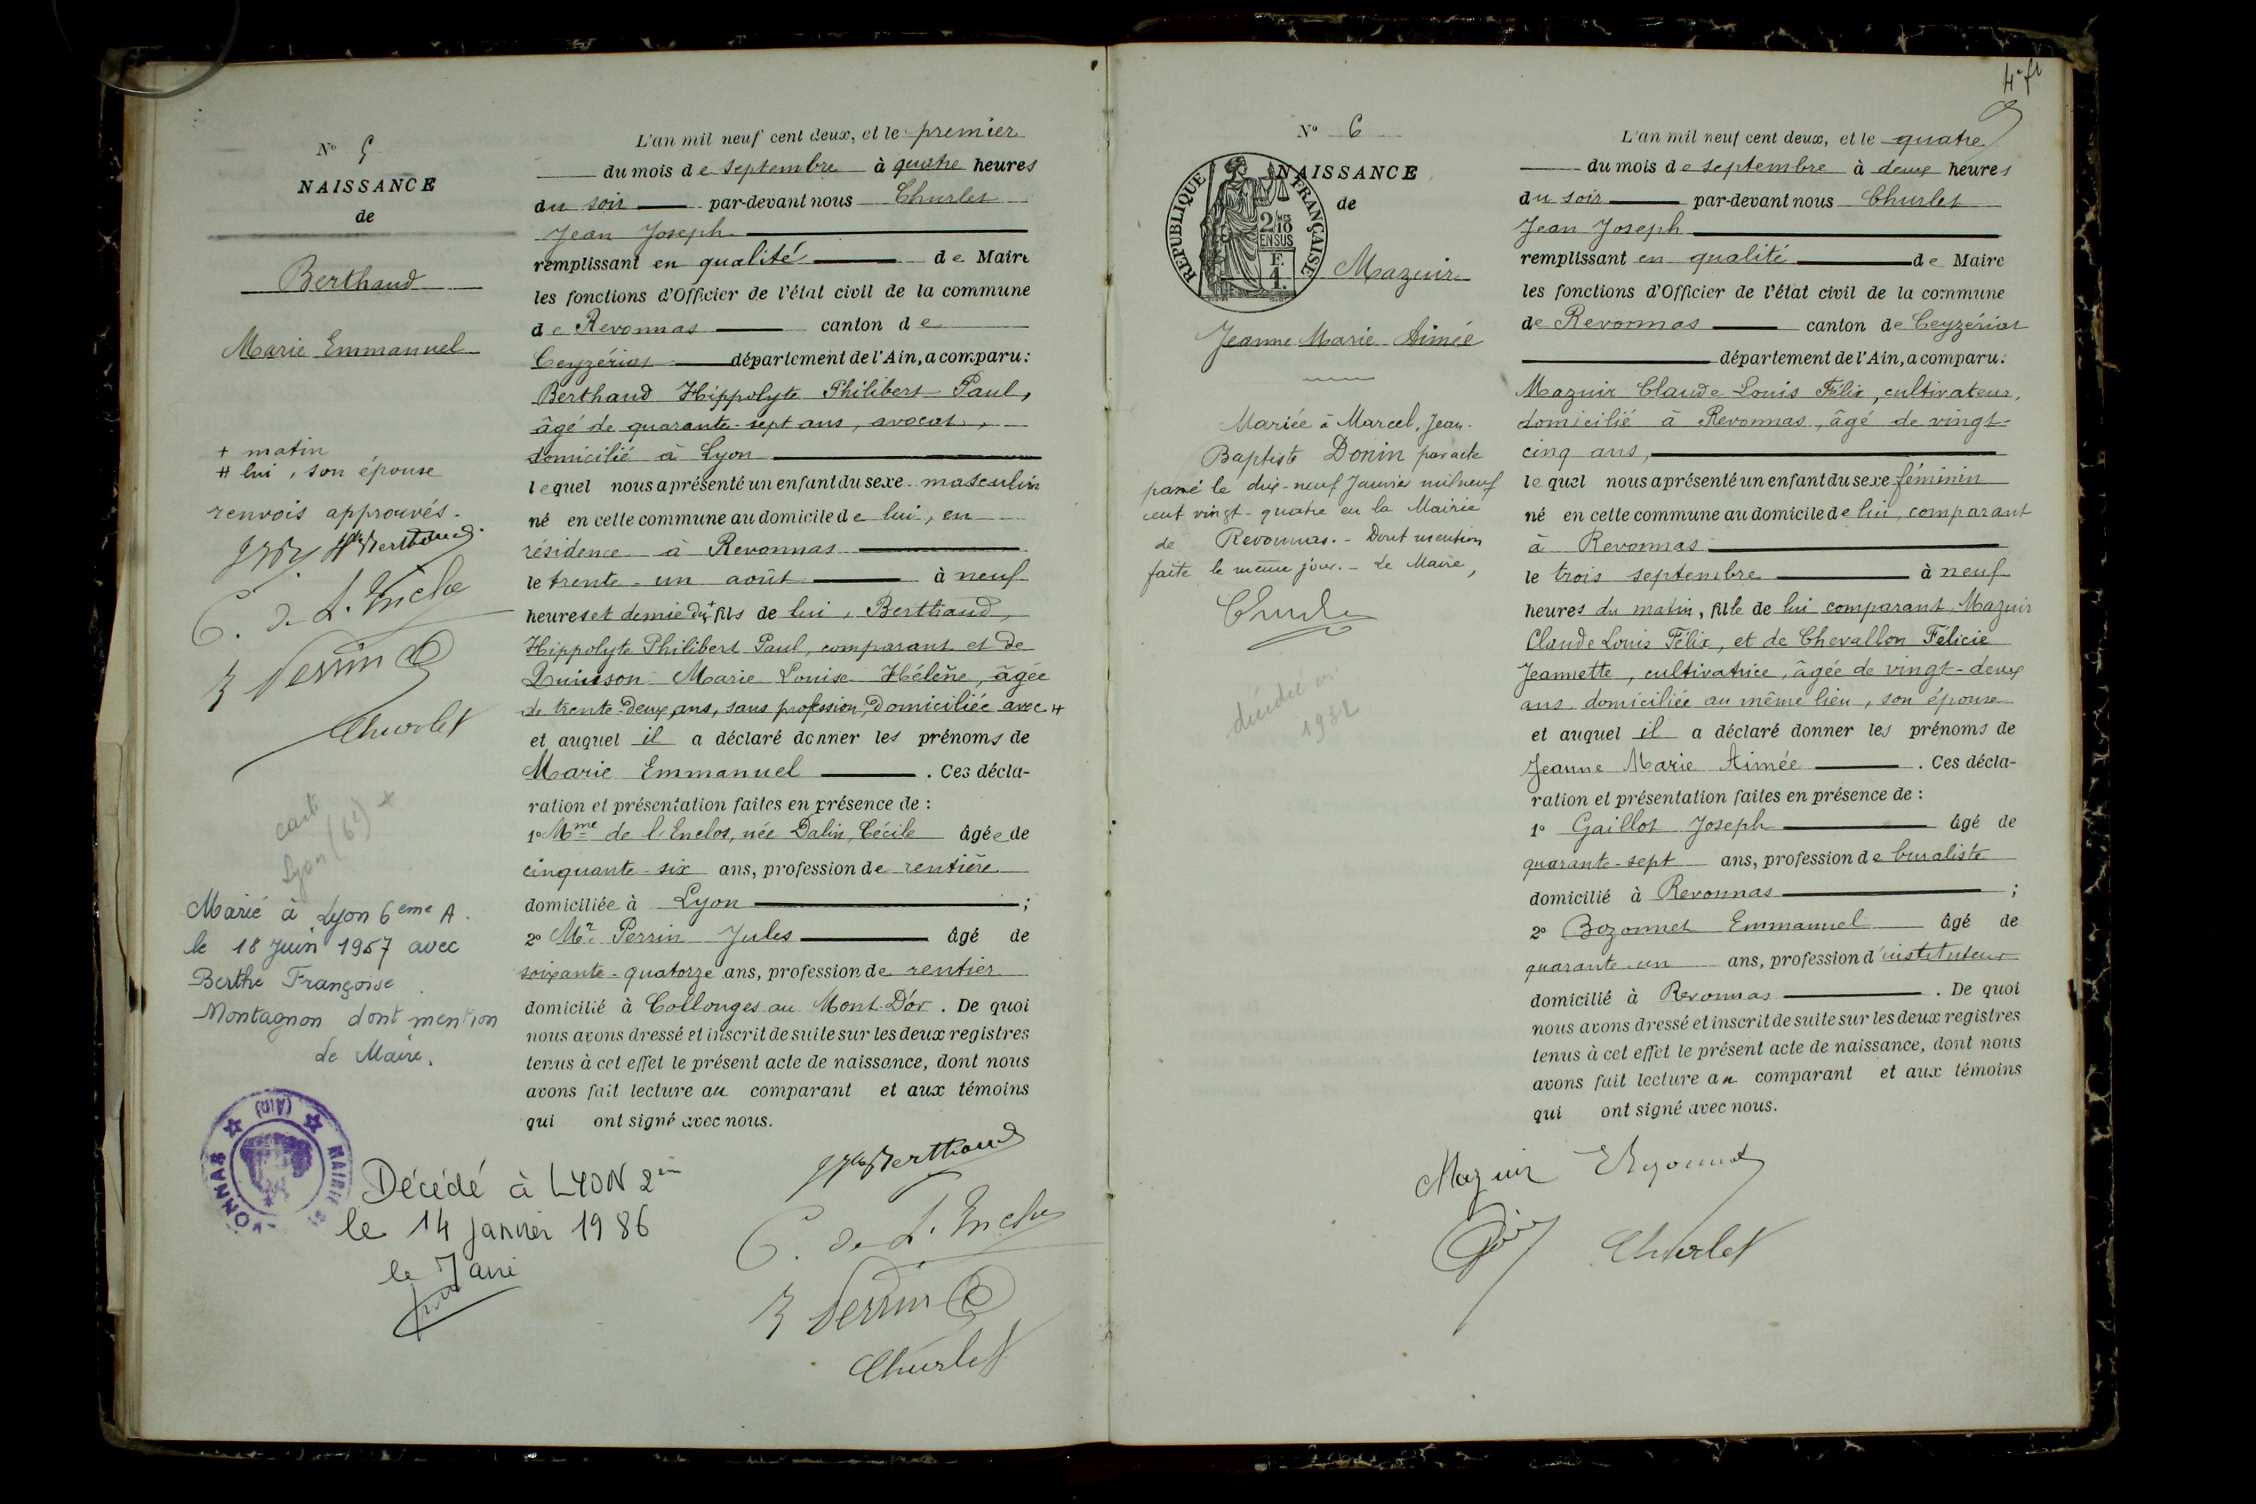 N° 5
NAISSANCE
de
Berthaud
Marie Emmanuel
+ matin
# lui, son épouse
renvois approuvés.
Berthaud
C. de L'Enclos
J Perrin
Churlet
carte
Lyon (6e)
Marié à Lyon 6eme A.
le 18 Juin 1957 avec
Berthe Françoise
Montagnon dont mention
Le Maire.
MAIRIE DE REVONNAS (Ain)
Décédé à LYON 2
le 14 janvier 1986
le Maire
L'an mil neuf cent deux, et le premier
du mois de septembre à quatre heures
du soir par-devant nous Churlet
Jean Joseph
remplissant en qualité de Maire
les fonctions d'Officier de l'état civil de la commune
de Revonnas canton de
Ceyzériat département de l'Ain, a comparu:
Berthaud Hippolyte Philibert Paul,
âgé de quarante-sept ans, avocat,
domicilié à Lyon
lequel nous a présenté un enfant du sexe masculin
né en cette commune au domicile de lui, en
résidence à Revonnas
le trente-un août à neuf
heures et demie du + fils de lui, Berthaud,
Hippolyte Philibert Paul, comparant et de
Marie Louise Hélène, âgée
de trente-deux ans, sans profession, domiciliée avec #
et auquel il a déclaré donner les prénoms de
Marie Emmanuel. Ces décla-
ration et présentation faites en présence de :
1° Mme de l'Enclos, née Dalin, Cécile âgée de
cinquante-six ans, profession de rentière
domiciliée à Lyon ;
2° Mr Perrin Jules âgé de
soixante-quatorze ans, profession de rentier
domicilié à Collonges au Mont-D'or. De quoi
nous avons dressé et inscrit de suite sur les deux registres
tenus à cet effet le présent acte de naissance, dont nous
avons fait lecture au comparant et aux témoins
qui ont signé avec nous.
Berthaud
C. de L'Enclos
J Perrin
Churlet
4e ft
N° 6
NAISSANCE
de
REPUBLIQUE FRANÇAISE
2/10 EN SUS
F.
1.
Mazuir
Jeanne Marie Aimée
Mariée à Marcel, Jean-
Baptiste Donin par acte
passé le dix-neuf Janvier mil neuf
cent vingt-quatre en la Mairie
de Revonnas. - Dont mention
faite le même jour. - Le Maire,
Churlet
décédée
1932
L'an mil neuf cent deux, et le quatre
du mois de septembre à deux heures
du soir par-devant nous Churlet
Jean Joseph
remplissant en qualité de Maire
les fonctions d'Officier de l'état civil de la commune
de Revonnas canton de Ceyzériat
département de l'Ain, a comparu:
Mazuir Claude Louis Félix, cultivateur,
domicilié à Revonnas, âgé de vingt-
cinq ans,
lequel nous a présenté un enfant du sexe féminin
né en cette commune au domicile de lui, comparant
à Revonnas
le trois septembre à neuf
heures du matin, fille de lui comparant Mazuir
Claude Louis Félix, et de Chevallon Félicie
Jeannette, cultivatrice, âgée de vingt-deux
ans domiciliée au même lieu, son épouse
et auquel il a déclaré donner les prénoms de
Jeanne Marie Aimée. Ces décla-
ration et présentation faites en présence de :
1° Gaillot Joseph âgé de
quarante-sept ans, profession de buraliste
domicilié à Revonnas ;
2° Bozonnet Emmanuel âgé de
quarante-un ans, profession d'instituteur
domicilié à Revonnas. De quoi
nous avons dressé et inscrit de suite sur les deux registres
tenus à cet effet le présent acte de naissance, dont nous
avons fait lecture au comparant et aux témoins
qui ont signé avec nous.
Mazuir
Churlet